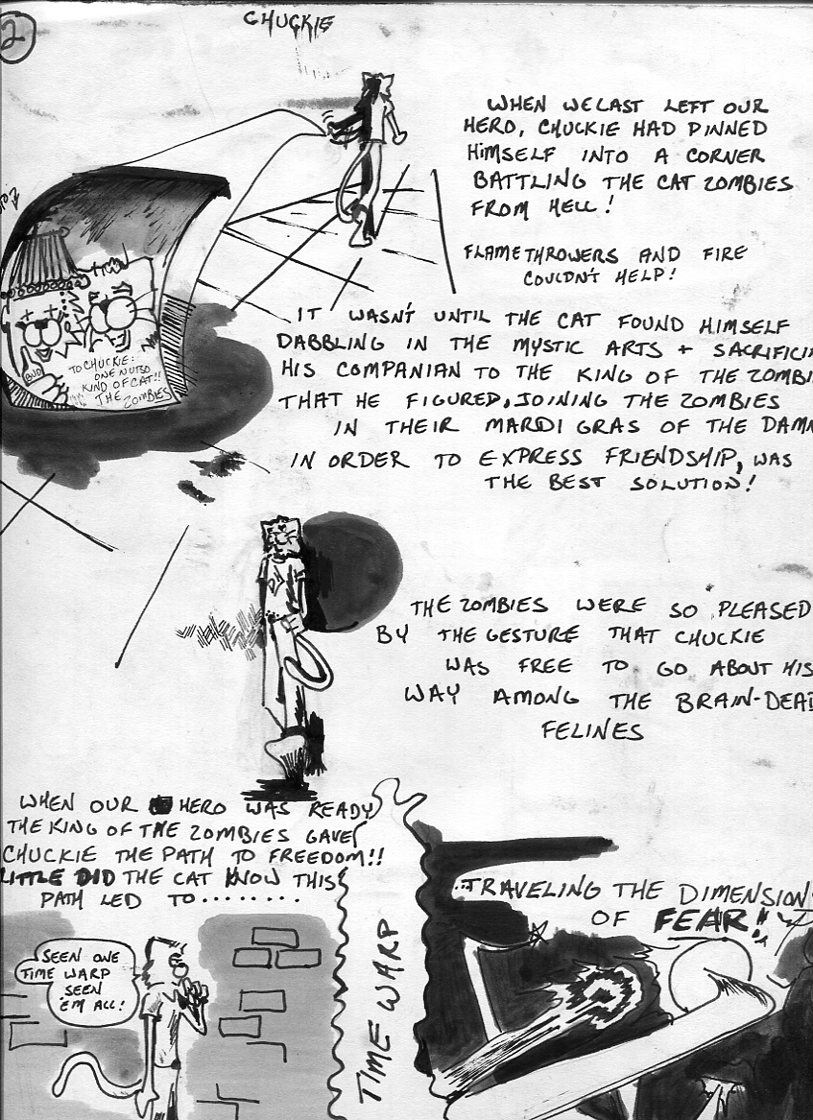 2
CHUCKIE
WHEN WE LAST LEFT OUR
HERO, CHUCKIE HAD PINNED
HIMSELF INTO A CORNER
BATTLING THE CAT ZOMBIES
FROM HELL!
FLAMETHROWERS AND FIRE
COULDN'T HELP!
IT WASN'T UNTIL THE CAT FOUND HIMSELF
DABBLING IN THE MYSTIC ARTS + SACRIFICIN
HIS COMPANIAN TO THE KING OF THE ZOMBI
THAT HE FIGURED, JOINING THE ZOMBIES
IN THEIR MARDI GRAS OF THE DAMN
IN ORDER TO EXPRESS FRIENDSHIP, WAS
THE BEST SOLUTION!
TO CHUCKIE:
ONE NUTSO
KIND OF CAT!!
THE ZOMBIES
BUD
THE ZOMBIES WERE SO PLEASED
BY THE GESTURE THAT CHUCKIE
WAS FREE TO GO ABOUT HIS
WAY AMONG THE BRAIN-DEAD
FELINES
WHEN OUR HERO WAS READY
THE KING OF THE ZOMBIES GAVE
CHUCKIE THE PATH TO FREEDOM!!
LITTLE DID THE CAT KNOW THIS
PATH LED TO........
SEEN ONE
TIME WARP
SEEN
'EM ALL!
TIME WARP
...TRAVELING THE DIMENSION
OF FEAR!!